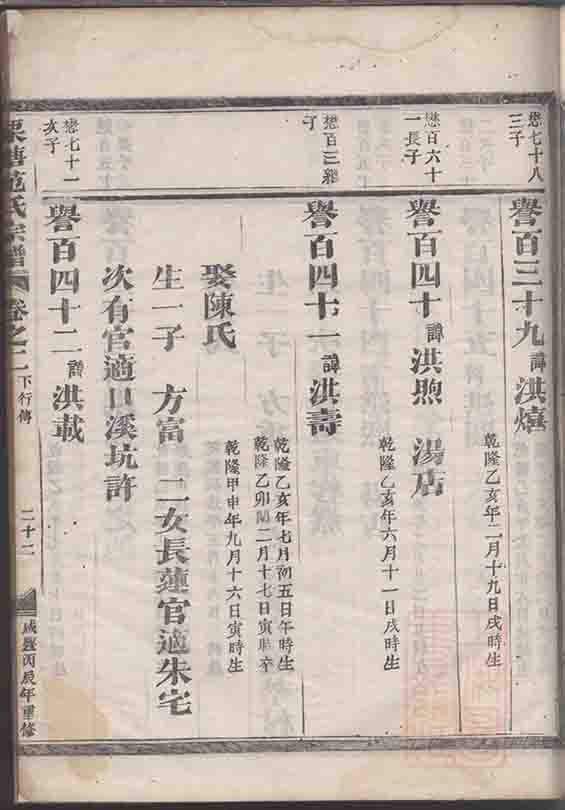 懋七十八
三子
譽百三十九 諱 洪熺
乾隆乙亥年二月十九日戌時生
懋百六十
一長子
譽百四十 諱 洪煦 湯店
乾隆乙亥年六月十一日戌時生
懋百三繼
子
譽百四十一 諱 洪壽
乾隆乙亥年七月初五日午時生
乾隆乙卯閏二月十七日寅時卒
娶陳氏
乾隆甲申年九月十六日寅時生
生一子 方富 二女長蓮官適朱宅
次有官適口溪坑許
懋七十一
次子
譽百四十二 諱 洪載
栗塘范氏宗譜 卷之二 下行傳 二十二 咸豐丙辰年重修